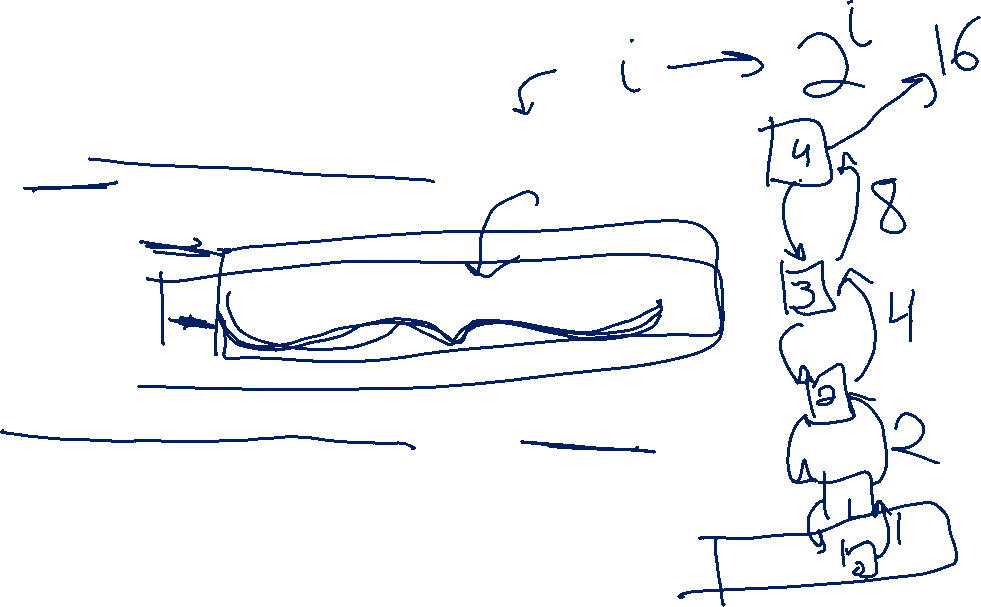 i → 2^i
16
4
8
3
4
2
2
1
1
0